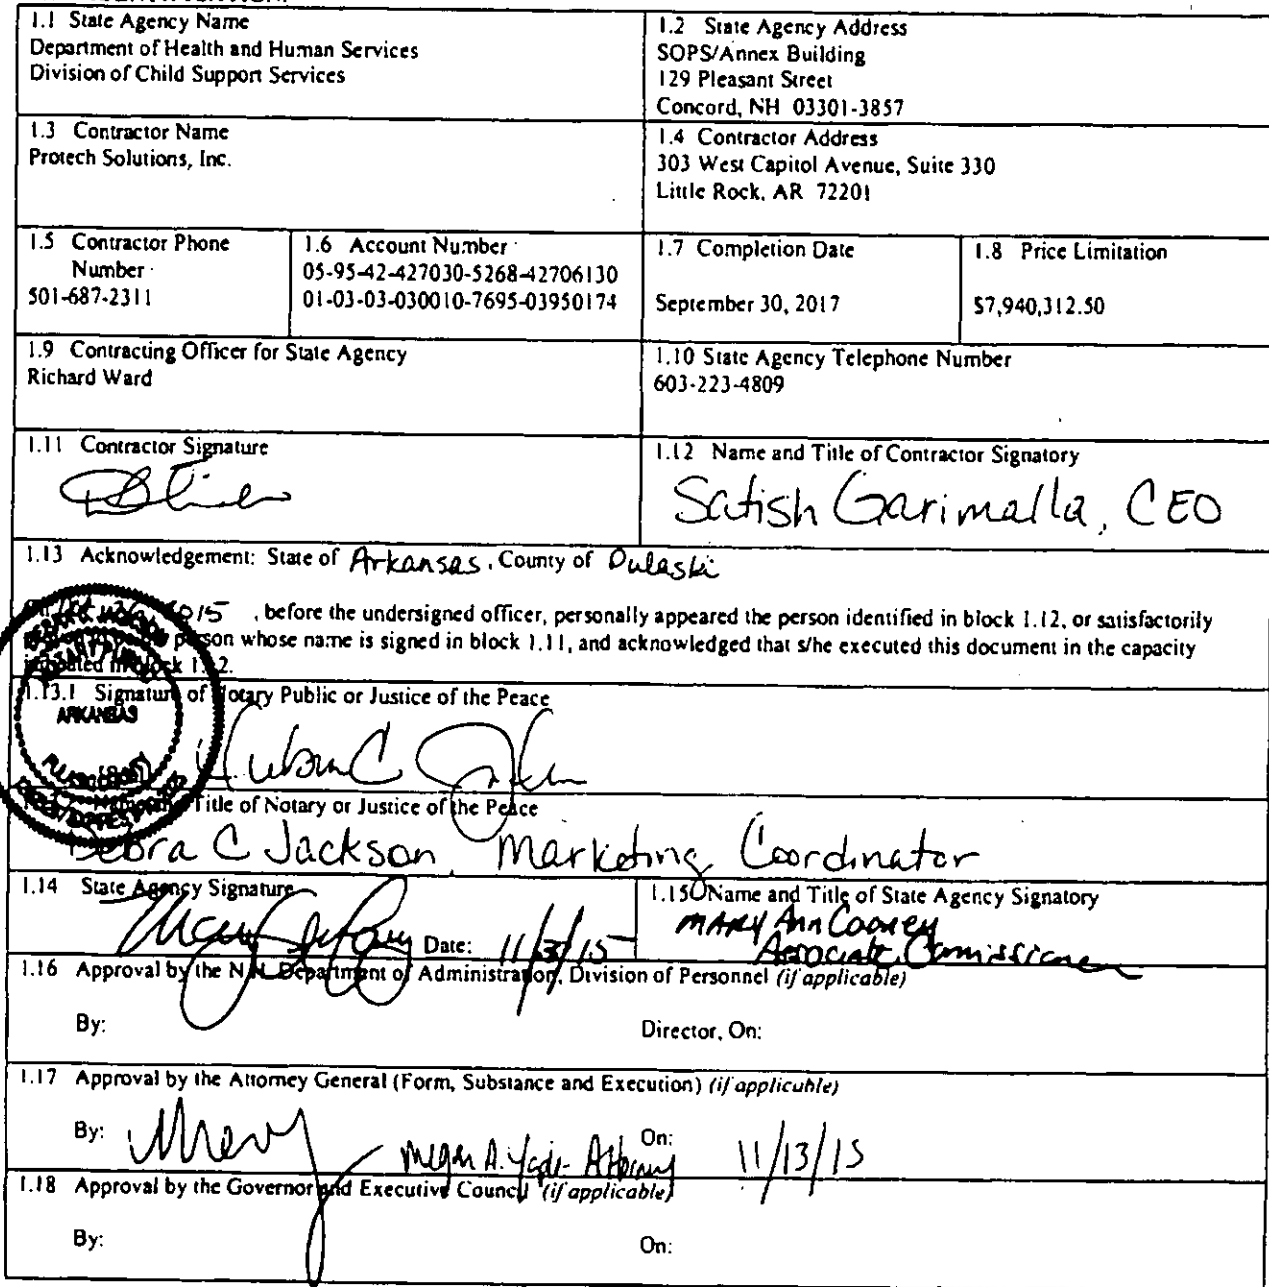 1.1 State Agency Name
Department of Health and Human Services
Division of Child Support Services
1.2 State Agency Address
SOPS/Annex Building
129 Pleasant Street
Concord, NH 03301-3857
1.3 Contractor Name
Protech Solutions, Inc.
1.4 Contractor Address
303 West Capitol Avenue, Suite 330
Little Rock, AR 72201
1.5 Contractor Phone
Number
501-687-2311
1.6 Account Number
05-95-42-427030-5268-42706130
01-03-03-030010-7695-03950174
1.7 Completion Date
September 30, 2017
1.8 Price Limitation
$7,940,312.50
1.9 Contracting Officer for State Agency
Richard Ward
1.10 State Agency Telephone Number
603-223-4809
1.11 Contractor Signature
1.12 Name and Title of Contractor Signatory
Satish Garimalla, CEO
1.13 Acknowledgement: State of Arkansas, County of Pulaski
2015, before the undersigned officer, personally appeared the person identified in block 1.12, or satisfactorily
person whose name is signed in block 1.11, and acknowledged that s/he executed this document in the capacity
indicated in block 1.12.
1.13.1 Signature of Notary Public or Justice of the Peace
ARKANSAS
Title of Notary or Justice of the Peace
Debra C Jackson, Marketing Coordinator
1.14 State Agency Signature
Date: 11/3/15
1.15 Name and Title of State Agency Signatory
Mary Ann Cooney
Associate Commissioner
1.16 Approval by the N.H. Department of Administration, Division of Personnel (if applicable)
By:
Director, On:
1.17 Approval by the Attorney General (Form, Substance and Execution) (if applicable)
By:
Megan A. - Attorney
On: 11/13/15
1.18 Approval by the Governor and Executive Council (if applicable)
By:
On: